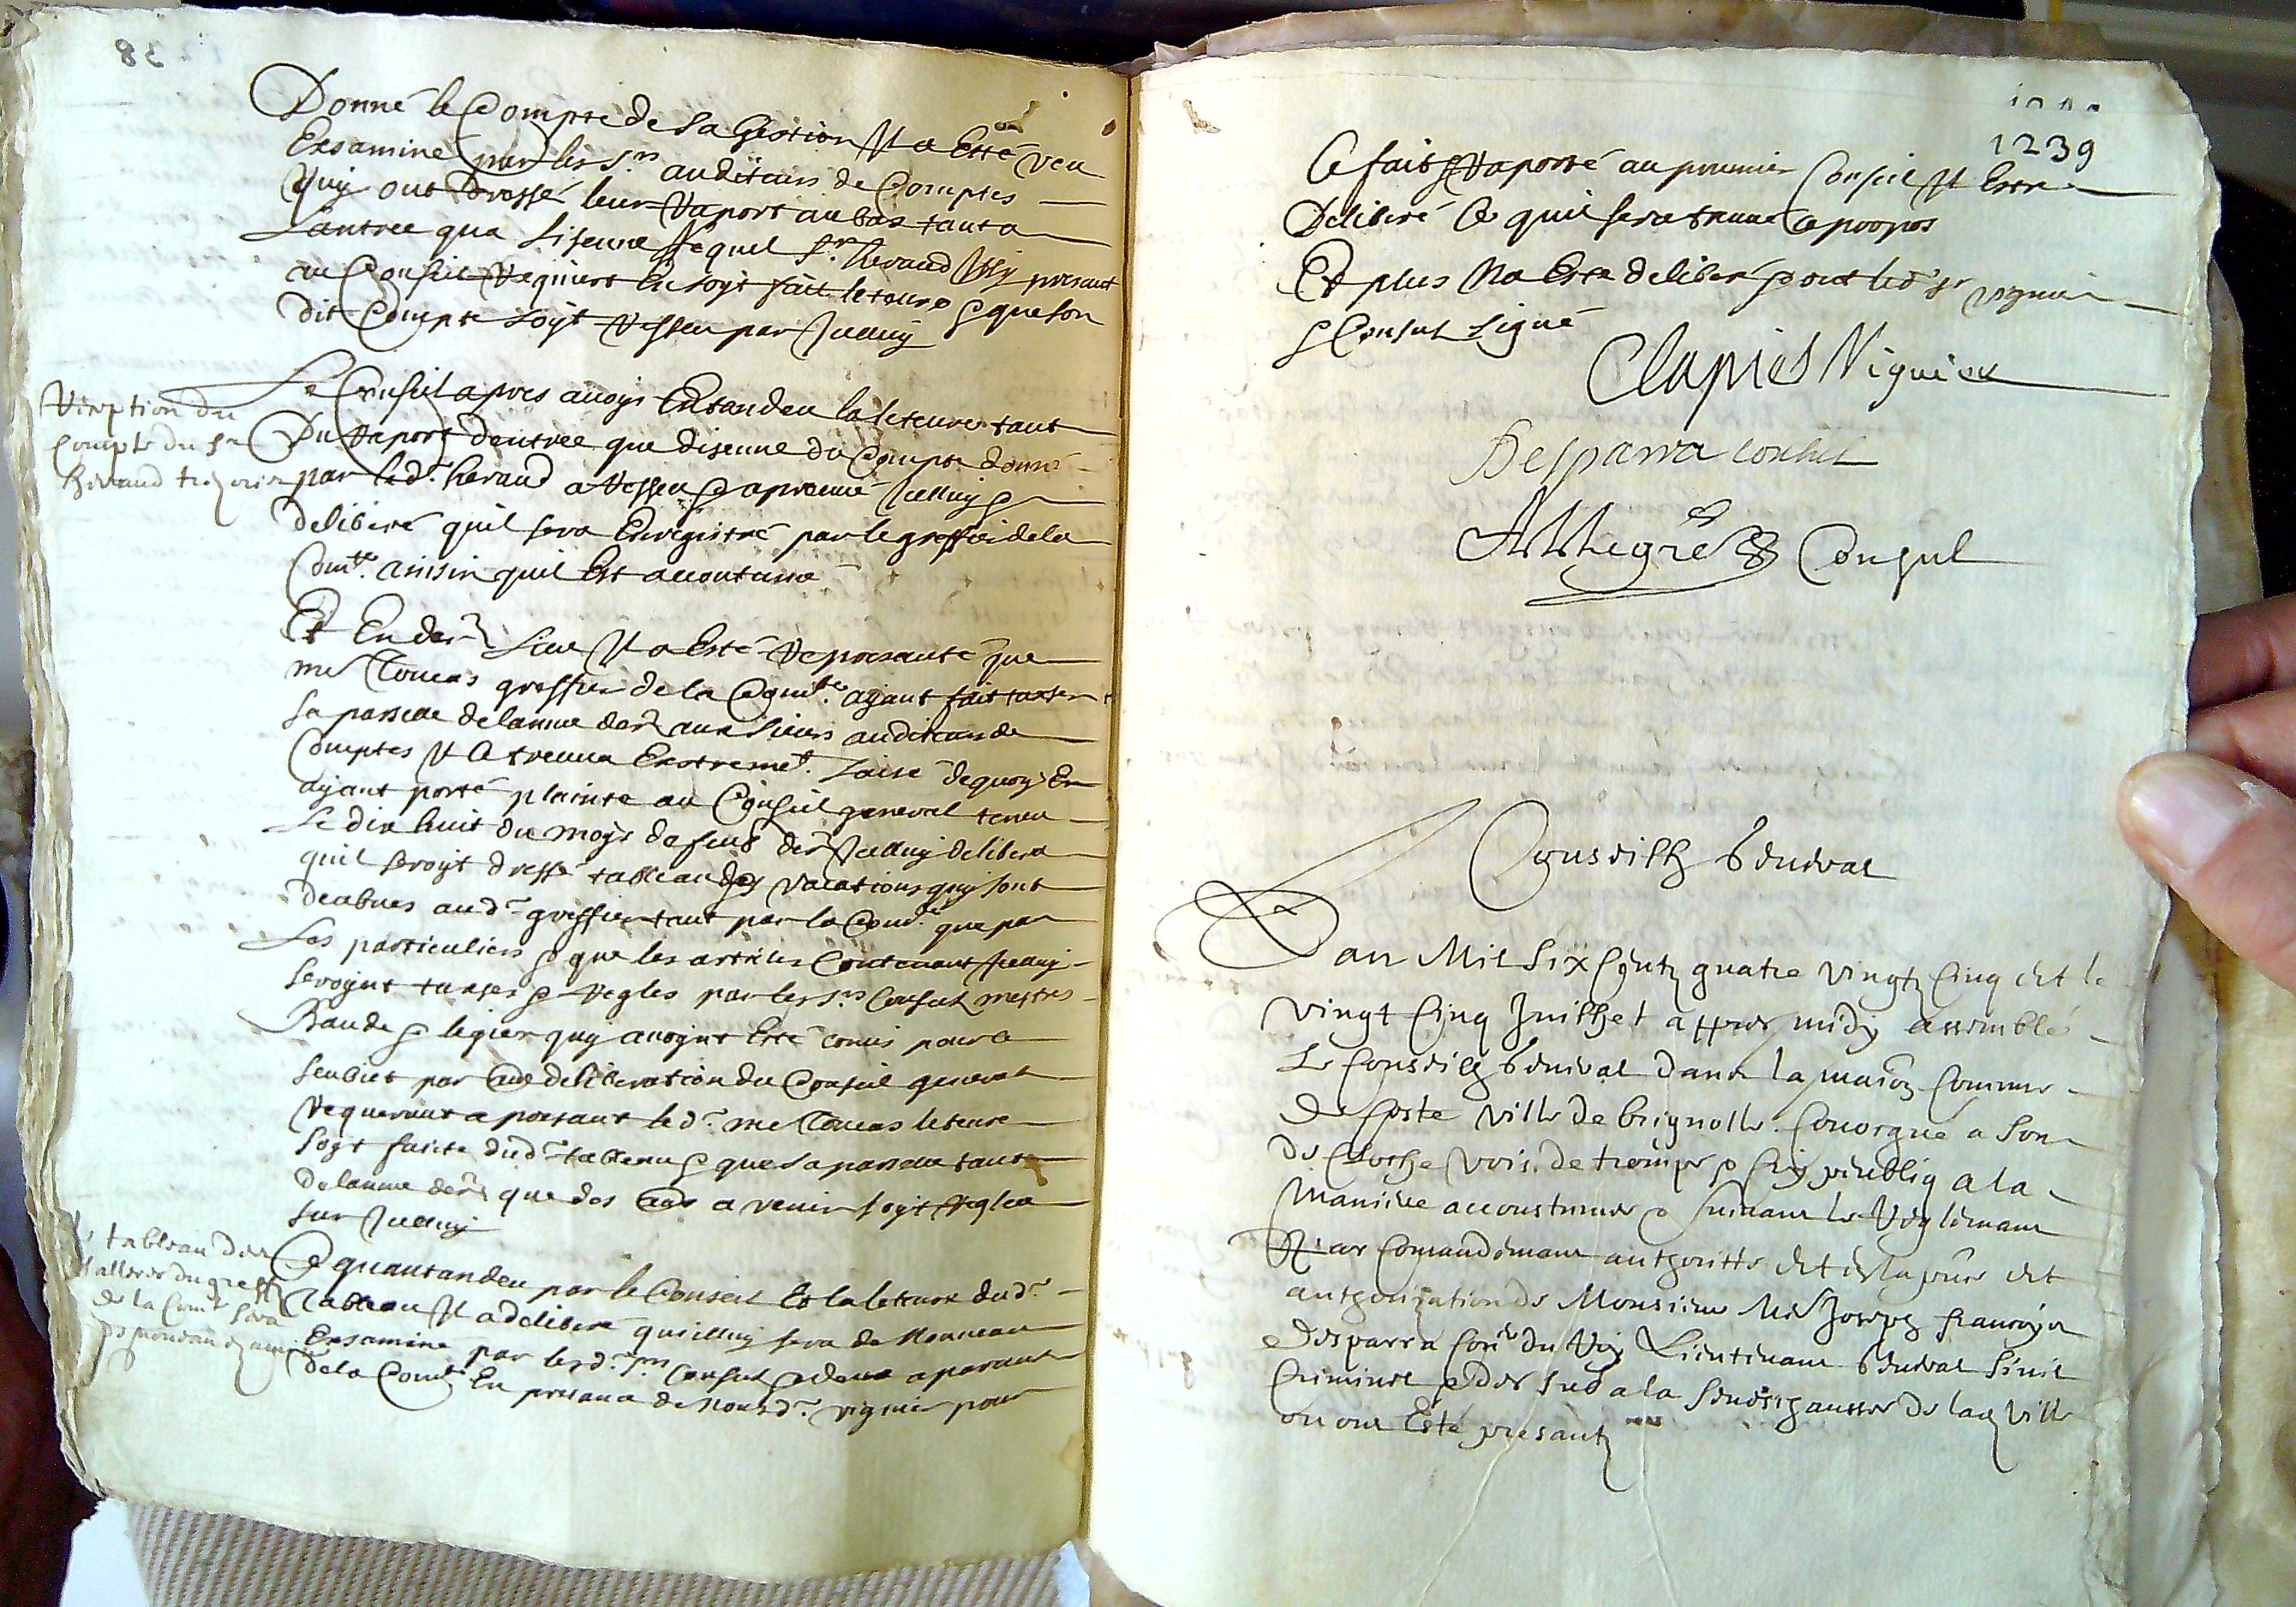 Donné le Compte de sa Gestion Il a Esté veu
Exsaminé par les Srs auditeurs de Comptes
quy ont dressé leur Raport au bas tant a
Lantree qua Lisseue Lequel Sr heraud Issy presant
au Conseil Requiert En soyt fait leteure & que son
dit Compte soyt Resseu par Icelluy
Reseption du
compte du sr
heraud trezorier
Le Conseil apres avoyr Entandeu la leteure tant
Du Raport dentree que disseue du Compte donné
par led. heraud a Resseu & aprouvé Icelluy &
deliberé quil sera Enregistré par le greffier de la
Comte. ainsin quil Est acoutumé
Et En der Lieu Il a Esté Represanté que
me Toucas greffier de la Comte. ayant fait taxser
sa parselle de lannee der aux sieurs auditeurs de
Comptes Il a treuva Exstremet. Laisé de quoy En
ayant porté plainte au Conseil general teneu
Le dix huit du moys de feub der Icelluy delibera
quil seroyt dressé tableau des vacations quy sont
deubues aud. greffier tant par la Comte que par
Les particuliers & que les articles Contenant Icelluy
seroynt taxses & Regles par les Srs Consul mestres
Baude & legier quy avoynt Esté comis pour le
seubiet par lade deliberation du Conseil general
Requerant a presant led. me Toucas leteure
soyt faicte dud. tableau & que sa parselle tant
de lannee der que des ans a venir soyt Reglea
sur Icelluy
le tableau des
salleres du greffier
de la Comte sera
de nouveau examine
Ce quantandeu par le Conseil Et la leteure dud.
Tableau Il a deliberé quicelluy sera de Nouveau
Exsamine par lesd. Srs Consul & deux aparants
de la Comte En presance de Nousd. viguier pour
1239
Ce fait & Raporté au premier Conseil Il Estre
Deliberé Ce quil sera treuvé a propos
Et plus Na Esté deliberé & ont led. Sr viguier
& Consul Signé
Clapiés Viguier
Desparra consul
Allegre Consul
Conseilh General
Lan Mil Six Centz quatre vingtz Cinq Et le
vingt Cinq Juilhet appres midy assemblé
Le Conseilh General dans la maison Commune
De ceste ville de brignolle Convoqué a Son
de Cloche Voix de trompe & Cry pieublig a la
Maniere accoustumee & Suivant le Reglemant
Par Comandemant authoritte Et de la pñce Et
authorization de Monsieur Me Joseph françoys
Desparra Coner du Roy Lieutenant General Sivil
Criminel & des Sub a la Seneschaussee de lad Ville
ou ont Esté presantz